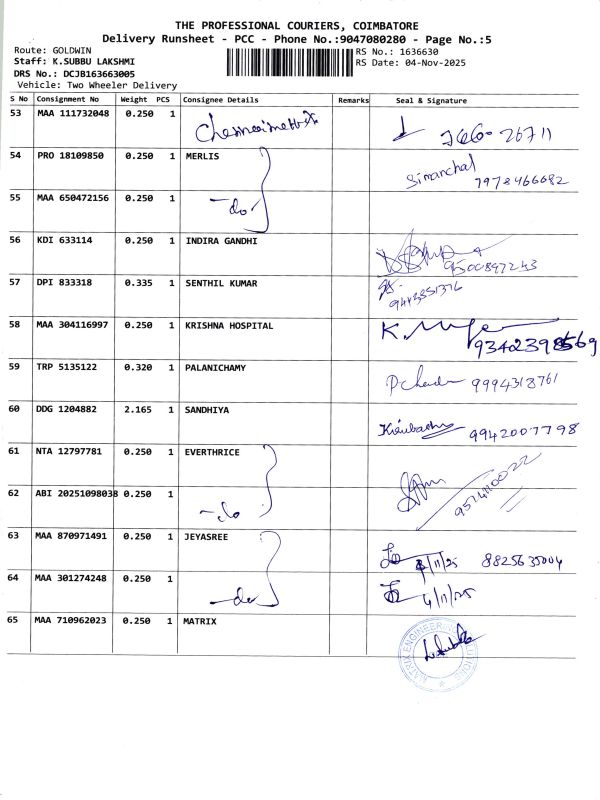 THE PROFESSIONAL COURIERS, COIMBATORE
Delivery Runsheet - PCC - Phone No.:9047080280 - Page No.:5
Route: GOLDWIN
Staff: K.SUBBU LAKSHMI
DRS No.: DCJB163663005
Vehicle: Two Wheeler Delivery
RS No.: 1636630
RS Date: 04-Nov-2025
S No Consignment No Weight PCS Consignee Details Remarks Seal & Signature
53 MAA 111732048 0.250 1
54 PRO 18109850 0.250 1 MERLIS Simanchal
7978466682
55 MAA 650472156 0.250 1 -do
56 KDI 633114 0.250 1 INDIRA GANDHI
9500897243
57 DPI 833318 0.335 1 SENTHIL KUMAR
9442351376
58 MAA 304116997 0.250 1 KRISHNA HOSPITAL
59 TRP 5135122 0.320 1 PALANICHAMY 9994318761
60 DDG 1204882 2.165 1 SANDHIYA 9942007798
61 NTA 12797781 0.250 1 EVERTHRICE
62 ABI 20251098038 0.250 1 -do
63 MAA 870971491 0.250 1 JEYASREE 4/11/25 8825635004
64 MAA 301274248 0.250 1 -do 4/11/25
65 MAA 710962023 0.250 1 MATRIX
MATRIX ENGINEERING SOLUTIONS